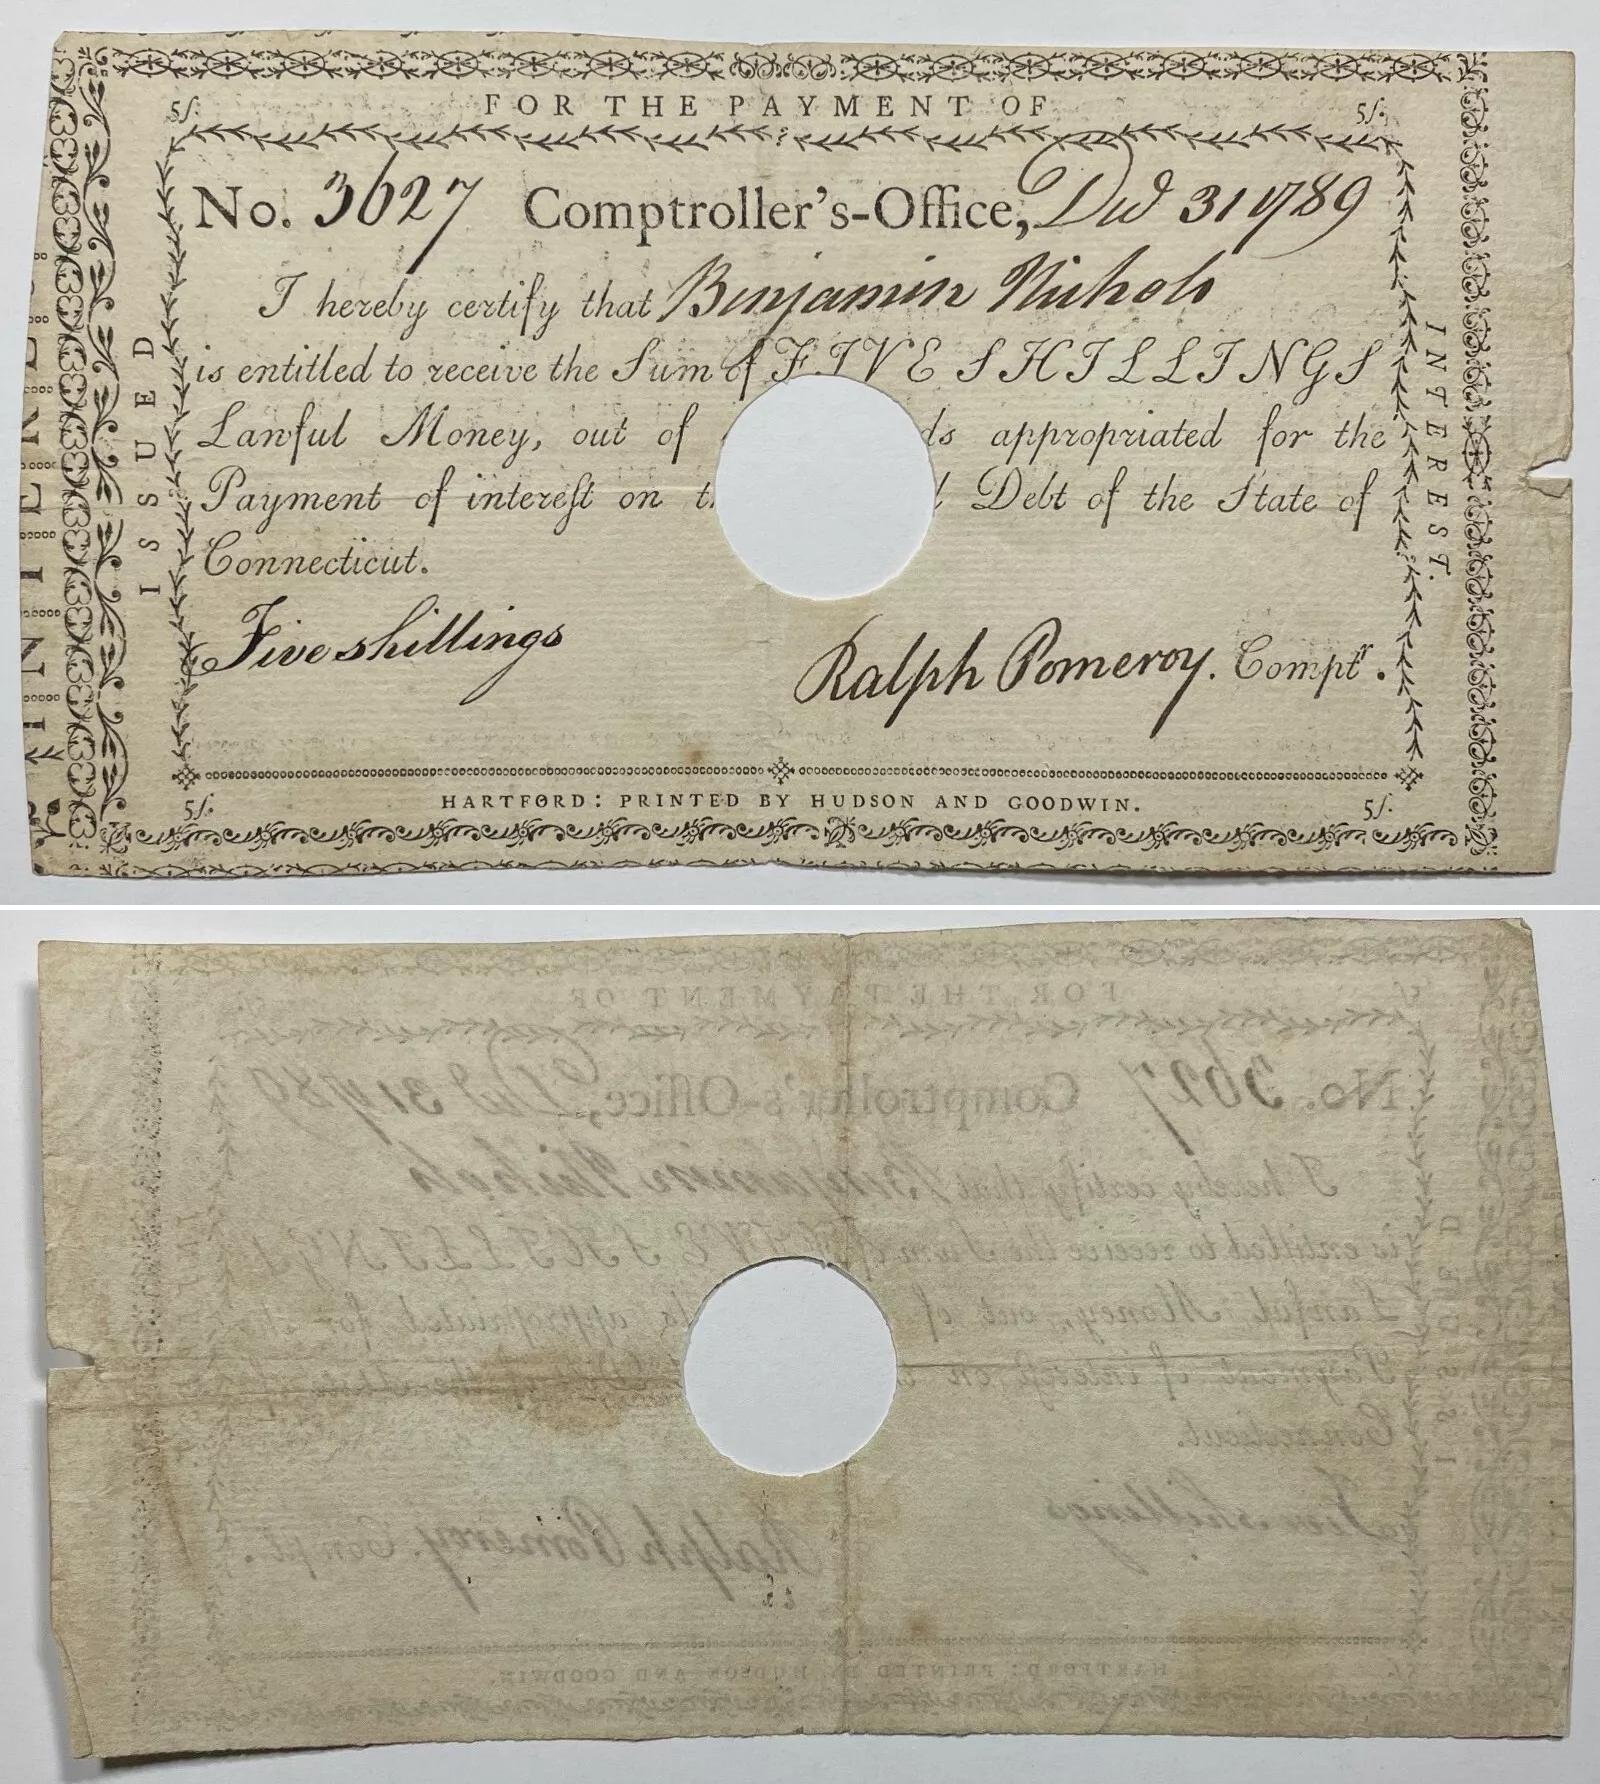 FOR THE PAYMENT OF
5ſ. 5ſ.
No. 3627 Comptroller's-Office, Decd 31 1789
I hereby certify that Benjamin Nichols
is entitled to receive the Sum of FIVE SHILLINGS
Lawful Money, out of ds appropriated for the
Payment of intereſt on Debt of the State of
Connecticut.
Five shillings
Ralph Pomeroy. Comptr.
5ſ. 5ſ.
HARTFORD: PRINTED BY HUDSON AND GOODWIN.
ISSUED
INTEREST.